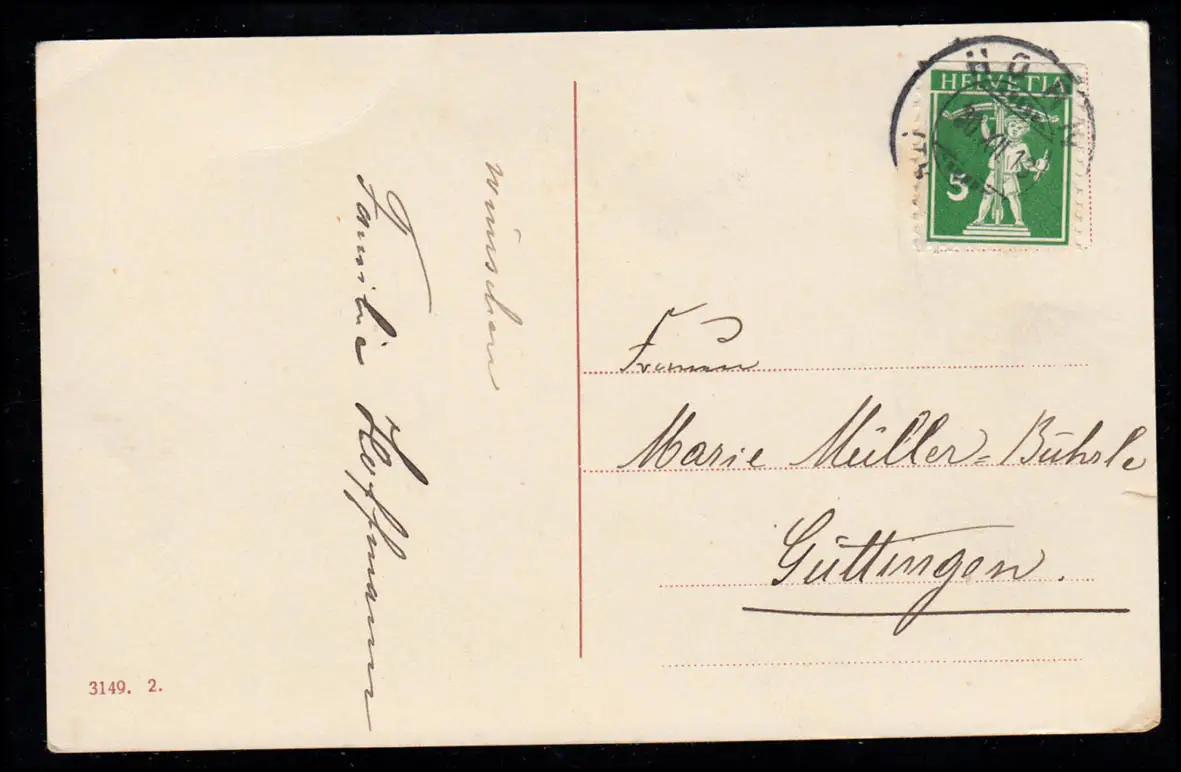 wünschen
Familie Hoffmann
3149. 2.
HELVETIA
5
Marie Müller=Bührle
Güttingen.